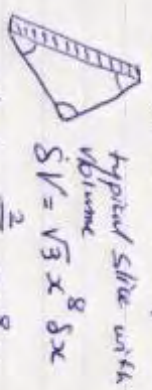 typical slice with
volume
δV = √3 x⁸ δx
2